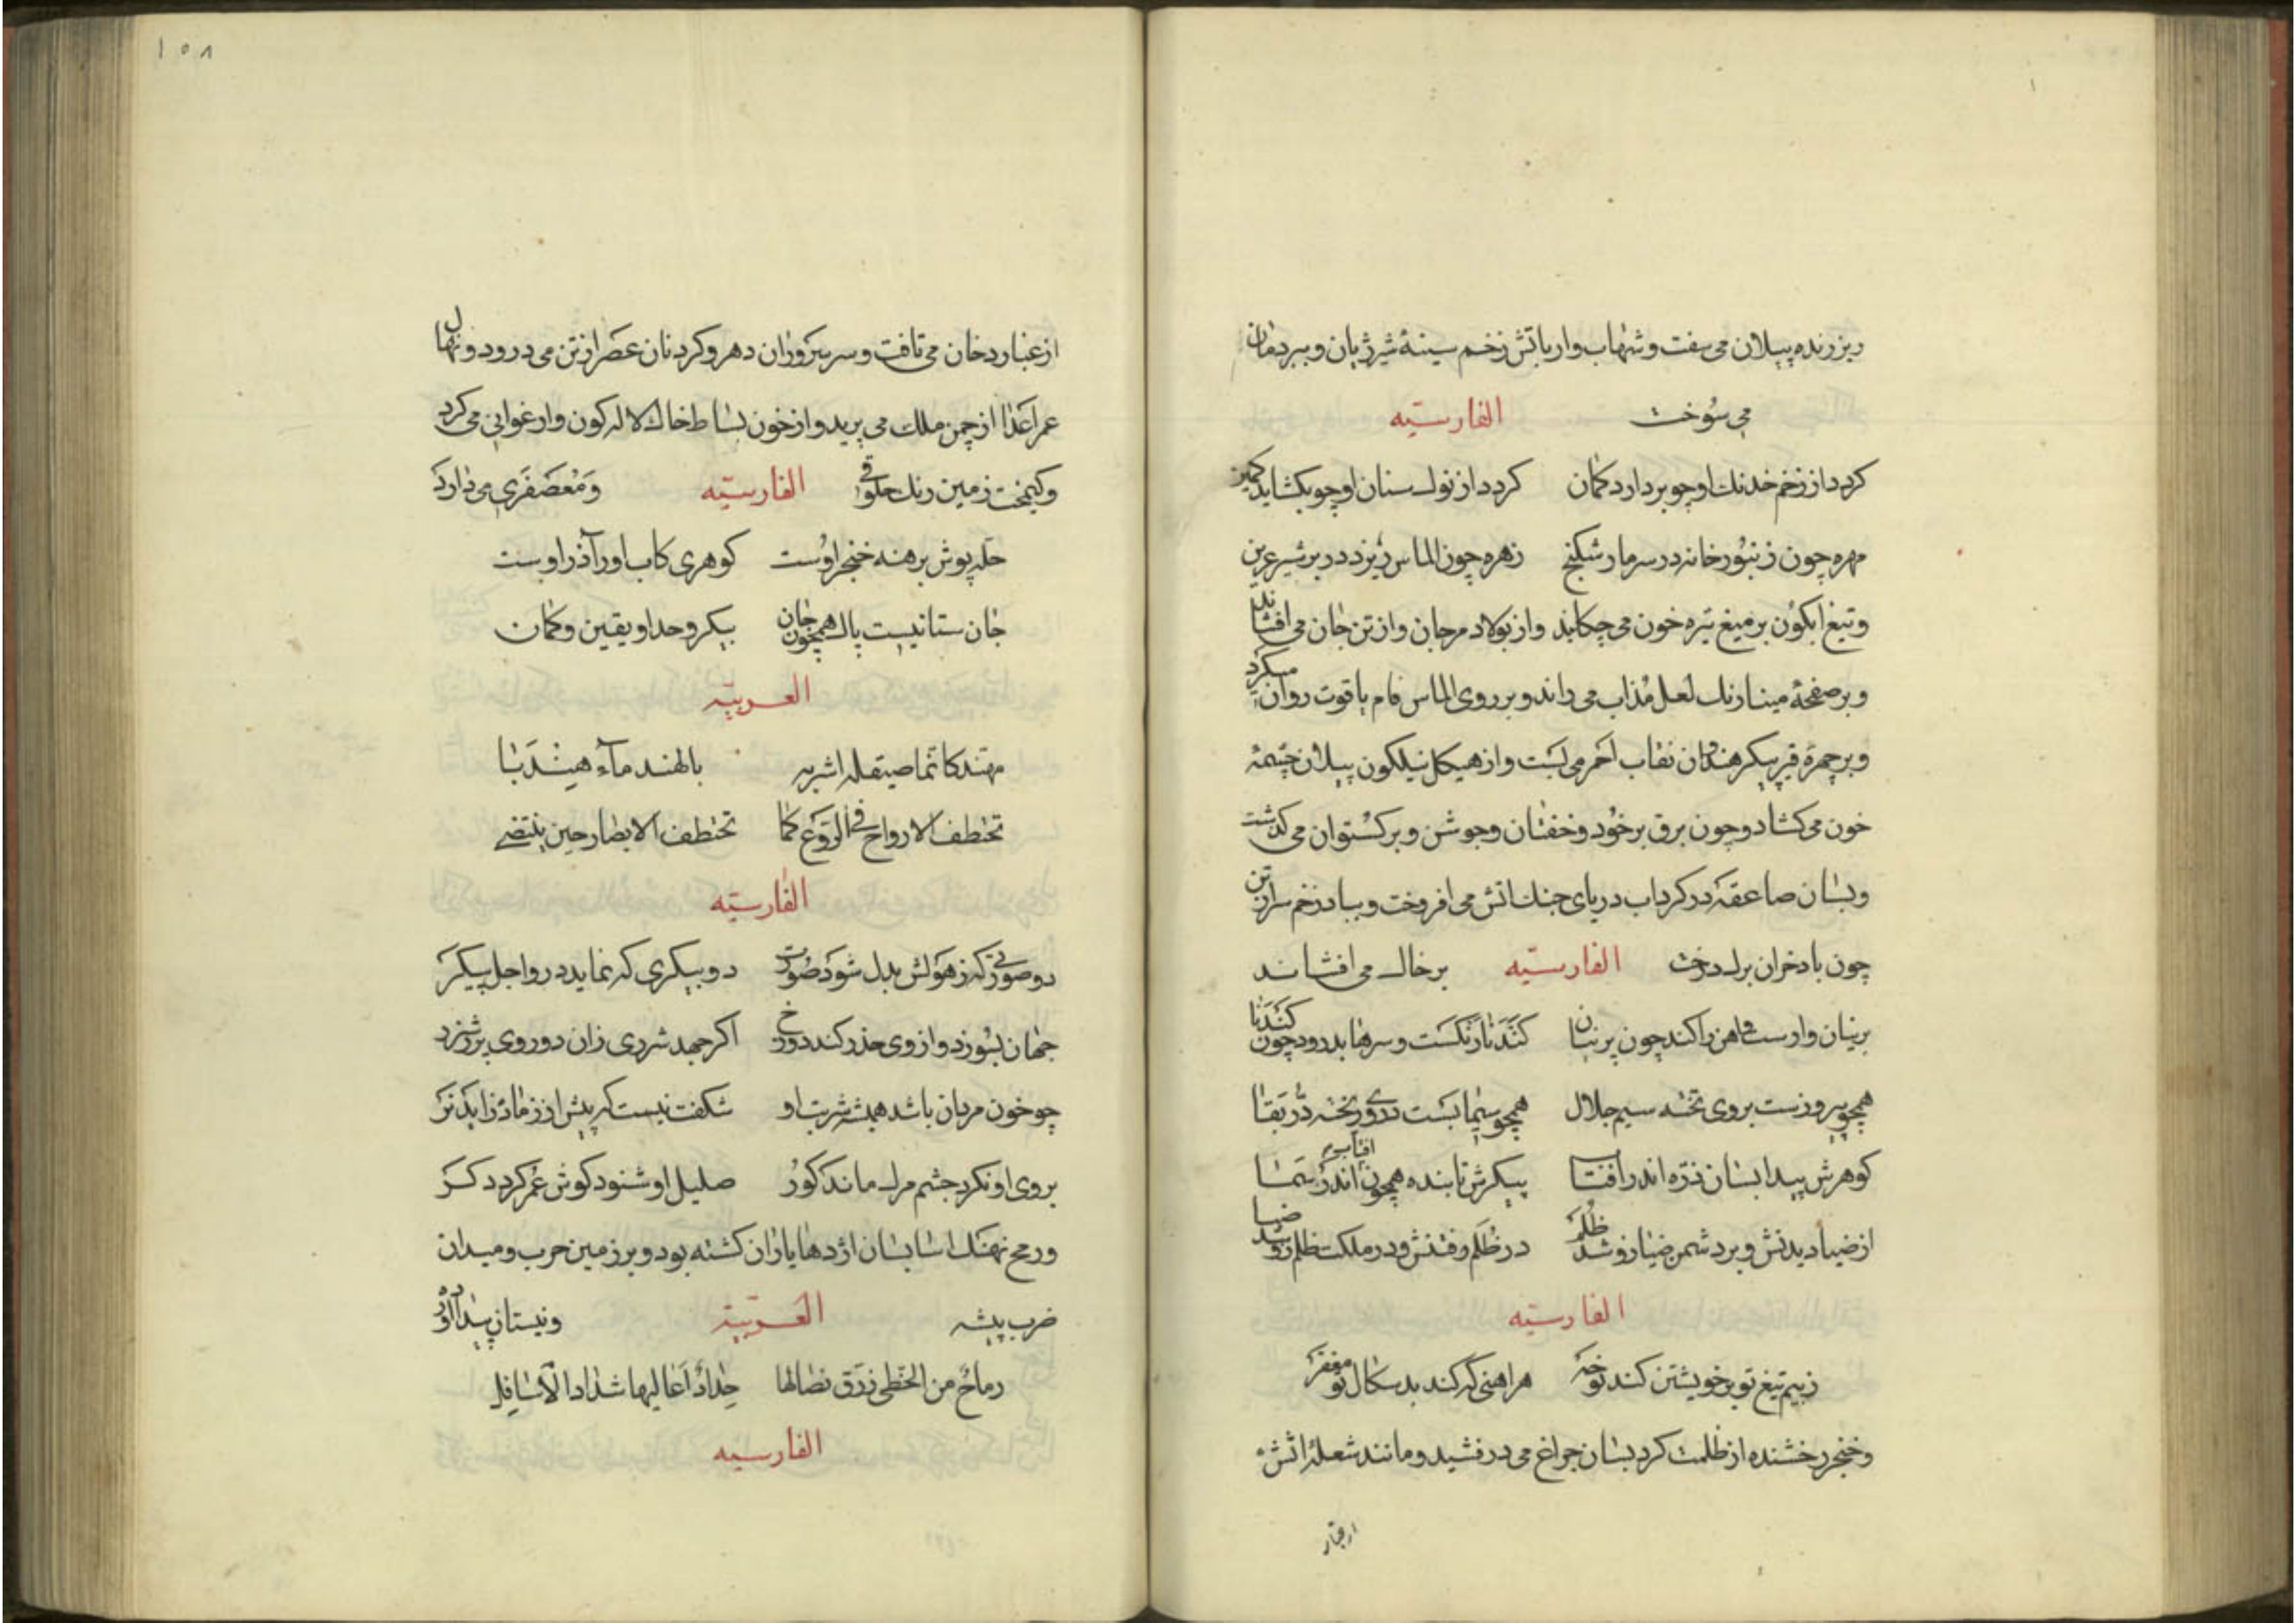 ریز زنده پیلان می سفت و شهاب وار باتش زخم سینۀ شیر ژیان و ببر دمان
می سُوخت الفارسیّه
کردد از زخم خدنك او چو بردارد کمان کردد از نوك سنان او چو بکشاید کمین
مهره چون زنبُور خانه در سر مار شکنج زهره چون الماس ریزد در بر شیر عرین
و تیغ ابکون بر میغ تیره خون می چکانید و از بولاد مرجان و از تن جان می افشاند
و بر صفحۀ مینا رنك لعل مُذاب می راند و بر روی الماس فام یاقوت روان میکرد
و بر چهرۀ قیر پیکر هندوان نقاب احمر می بست و از هیکل نیلکون پیلان چشمۀ
خون می کشاد و چون برق بر خوُد و خفتان و جوشن و برکستوان می کذشت
و بسان صاعقه در کرداب دریای جنك اتش می افروخت و بباد زخم سر از تن
چون باد خزان برك درخت الفارسیّه بر خاك می افشاند
برنیان وارست و اهن را کند چون پرنیان کَندَنا رنکست و سرها بدرود چون کَندَنا
همچو پیروزست بروی تخته سیم حلال همچو سیمابست در وی ریخته درّ بقا
کوهرش پیدا بسان ذرّه اندر افتاب پیکرش تابنده همچون افتابی اندر سَما
از ضیا دیدنش و بر دشمن ضیا زو شد ظُلَم در ظُلَم رفتنش و در ملکت ظلم زو شد ضیا
الفارسیّه
ز بیم تیغ تو بر خویشتن کند نوحه هر اهنی که کند بد سکال تو مغفر
و خنجر رخشنده از ظلمت کرد بسان چراغ می درفشید و مانند شعلۀ اتش
از غبار
۱۵۸
از غبار دخان می تافت و سر سَروران دهر و کردنان عصر از تن می درود و نهال
عمر اَعدا از چمن ملك می برید و از خون بساط خاك لاله کون و ارغوانی می کرد
و کیمخت زمین رنك حلوقی الفارسیّه وَ مُعَصفَری می دارد
حله پوش برهنه خنجر اوُست کوهری کاب او را آذر اوست
جان ستانیست پاك همچون جان بیکر و حد او یقین و کمان
العربیّه
مهند کانّما صیقله اشربه بالهند مآء هِنْدَبا
تختطف الارواح فی الرَّوع کما تختطف الابصار حین ینتضی
الفارسیّه
دو صورتی که ز هَولش بدل شود صُورت دو بیکری که نماید در و اجل پیکر
جهان بسوزد و از وی حذر کند دوزخ اکر جهد شرری زان دو روی پر ز شرر
چو خون مردان باشد همیشه شربت او شکفت نیست که پیش از زمانه زاید نَر
بروی او نکرد چشم مرك ماند کور صلیل او شنود کوش عُمر کردد کر
و رمح نهنك اسا بسان اژدها یازان کشته بود و بر زمین حرب و میدان
ضرب بیشه العَربیّة و نیستان پیدا آورده
رماحٌ من الخطی زرَق نصالها حِدادٌ اَعالیها شداد الاسافل
الفارسیه